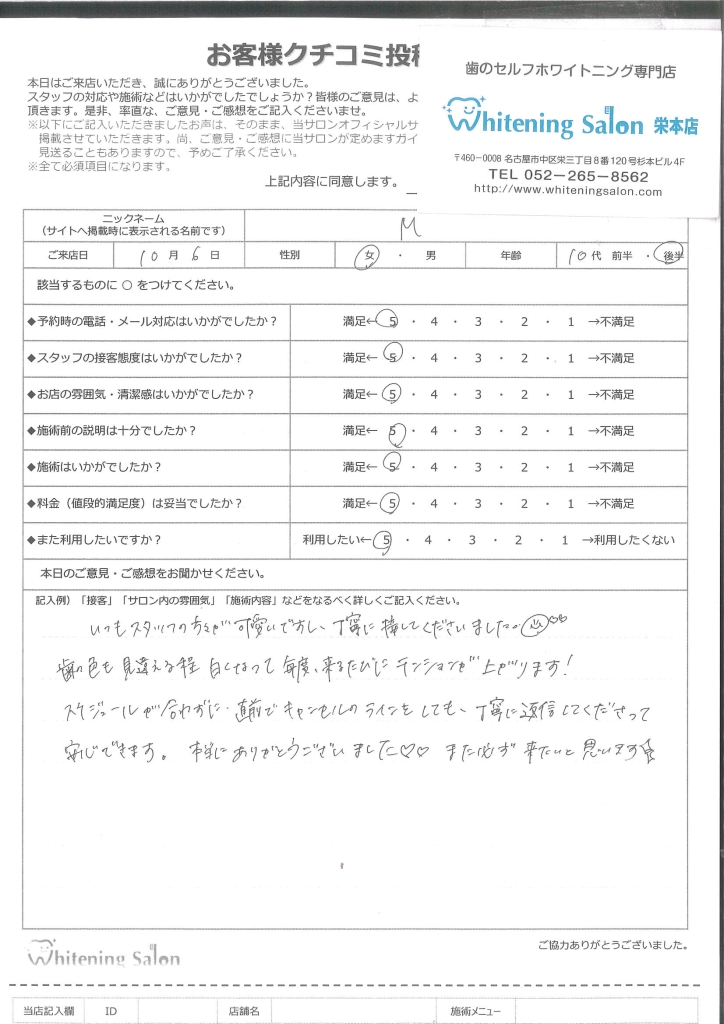 お客様クチコミ投稿
本日はご来店いただき、誠にありがとうございました。
スタッフの対応や施術などはいかがでしたでしょうか？皆様のご意見は、よ
頂きます。是非、率直な、ご意見・ご感想をご記入くださいませ。
※以下にご記入いただきましたお声は、そのまま、当サロンオフィシャルサ
掲載させていただきます。尚、ご意見・ご感想に当サロンが定めますガイ
見送ることもありますので、予めご了承ください。
※全て必須項目になります。
上記内容に同意します。
歯のセルフホワイトニング専門店
Whitening Salon 栄本店
〒460-0008 名古屋市中区栄三丁目8番120号杉本ビル4F
TEL 052-265-8562
http://www.whiteningsalon.com
ニックネーム
（サイトへ掲載時に表示される名前です） M
ご来店日 10月6日 性別 女・男 年齢 10代 前半・後半
該当するものに ○ をつけてください。
◆予約時の電話・メール対応はいかがでしたか？ 満足← 5 ・ 4 ・ 3 ・ 2 ・ 1 →不満足
◆スタッフの接客態度はいかがでしたか？ 満足← 5 ・ 4 ・ 3 ・ 2 ・ 1 →不満足
◆お店の雰囲気・清潔感はいかがでしたか？ 満足← 5 ・ 4 ・ 3 ・ 2 ・ 1 →不満足
◆施術前の説明は十分でしたか？ 満足← 5 ・ 4 ・ 3 ・ 2 ・ 1 →不満足
◆施術はいかがでしたか？ 満足← 5 ・ 4 ・ 3 ・ 2 ・ 1 →不満足
◆料金（値段的満足度）は妥当でしたか？ 満足← 5 ・ 4 ・ 3 ・ 2 ・ 1 →不満足
◆また利用したいですか？ 利用したい← 5 ・ 4 ・ 3 ・ 2 ・ 1 →利用したくない
本日のご意見・ご感想をお聞かせください。
記入例）「接客」「サロン内の雰囲気」「施術内容」などをなるべく詳しくご記入ください。
いつもスタッフの方々が可愛いですし、丁寧に接してくださいました。♡♡
歯の色も見違える程白くなって毎度、来るたびにテンションが上がります!
スケジュールが合わずに、直前でキャンセルのラインをしても、丁寧に返信してくださって
安心できます。本当にありがとうございました♡♡ また必ず来たいと思います☆
Whitening Salon
ご協力ありがとうございました。
当店記入欄 ID 店舗名 施術メニュー